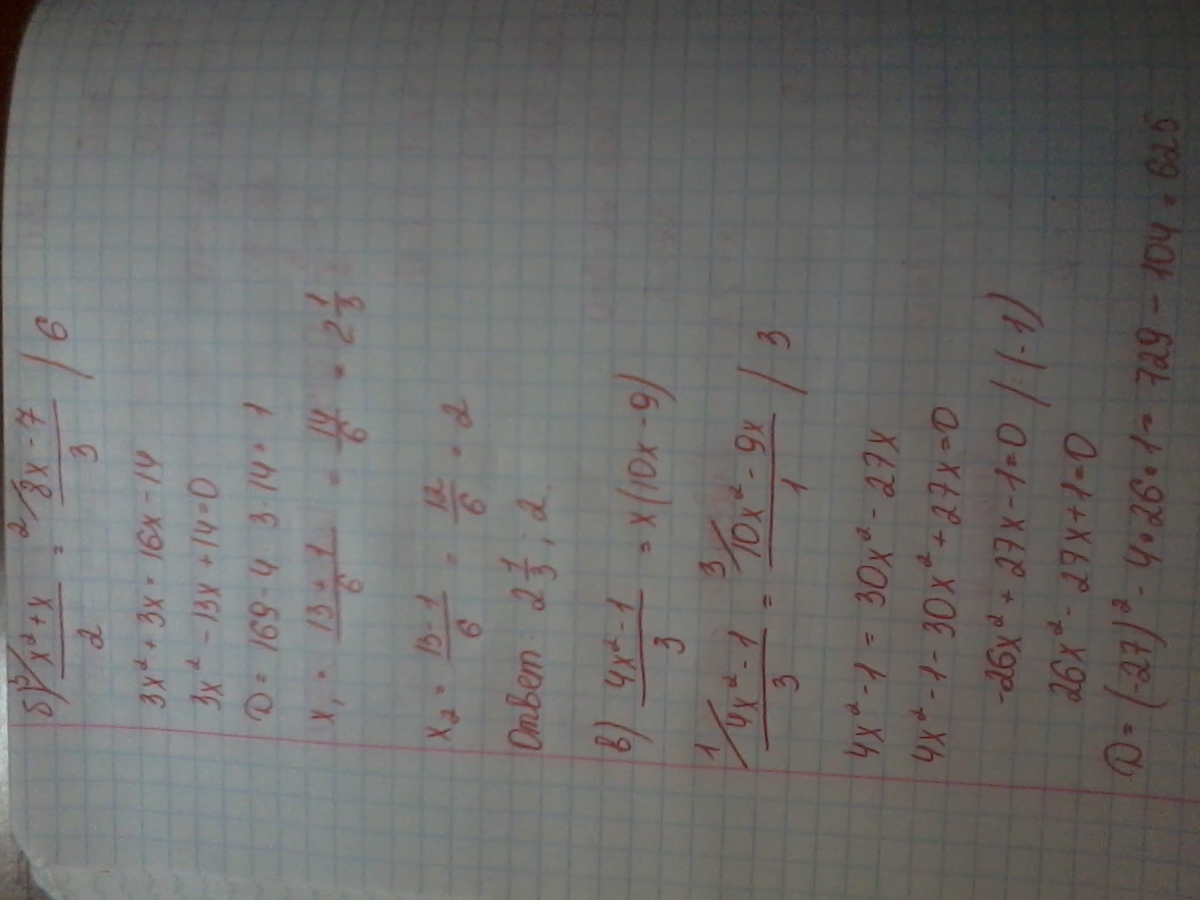 б) ³/ x² + x / 2 = ²/ 8x - 7 / 3 / 6
3x² + 3x = 16x - 14
3x² - 13x + 14 = 0
D = 169 - 4 · 3 · 14 = 1
x₁ = 13 + 1 / 6 = 14/6 = 2 1/3
x₂ = 13 - 1 / 6 = 12/6 = 2
Ответ: 2 1/3 ; 2
в) 4x² - 1 / 3 = x (10x - 9)
¹/ 4x² - 1 / 3 = ³/ 10x² - 9x / 1 / 3
4x² - 1 = 30x² - 27x
4x² - 1 - 30x² + 27x = 0
-26x² + 27x - 1 = 0 / : (-1)
26x² - 27x + 1 = 0
D = (-27)² - 4 · 26 · 1 = 729 - 104 = 625